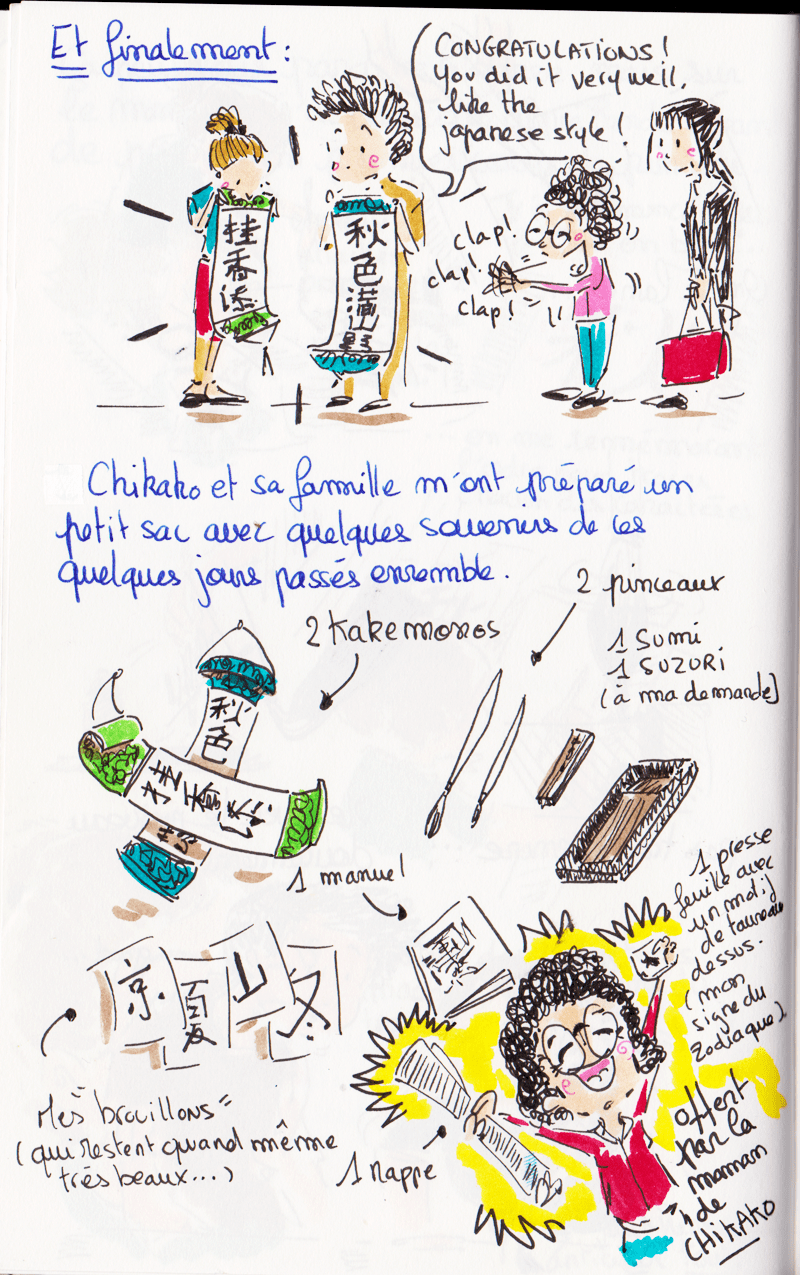 Et finalement :
CONGRATULATIONS !
You did it very well.
like the
japanese style !
clap!
clap!
clap!
挂
香
添
秋
色
野
Chikako et sa famille m'ont préparé un
petit sac avec quelques souvenirs de ces
quelques jours passés ensemble.
2 Kakemonos
2 pinceaux
1 Sumi
1 SUZURI
(à ma demande)
秋
色
挂香添
1 manuel
1 presse
feuille avec
un motif
de taureau
dessus.
(mon
signe du
zodiaque)
京
夏
山
冬
Mes "brouillons"
(qui restent quand même
très beaux...)
1 nappe
offert
par la
maman
de
CHIKAKO